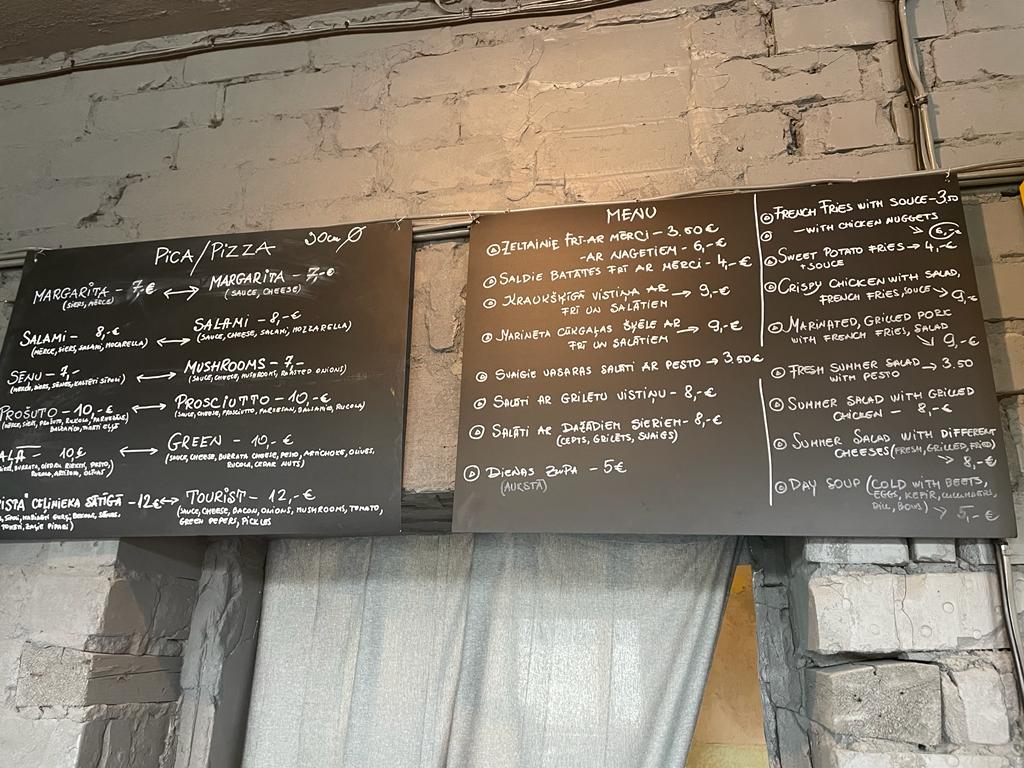 PICA/PIZZA 30cm Ø
MARGARITA - 7,-€
(SIERS, MĒRCE)
SALAMI - 8,-€
(MĒRCE, SIERS, SALAMI, MOCARELLA)
SĒŅU - 7,-
PROŠUTO - 10,-€
10€
CEĻINIEKA SĀTĪGĀ - 12€
MARGARITA - 7,-€
(SAUCE, CHEESE)
SALAMI - 8,-€
(SAUCE, CHEESE, SALAMI, MOZZARELLA)
MUSHROOMS - 7,-
(SAUCE, CHEESE, MUSHROOMS, ROASTED ONIONS)
PROSCIUTTO - 10,-€
(SAUCE, CHEESE, PROSCIUTTO, PARMESAN, BALSAMICO, RUCOLA)
GREEN - 10,-€
(SAUCE, CHEESE, BURRATA CHEESE, PESTO, ARTICHOKE, OLIVES,
RUCOLA, CEDAR NUTS)
TOURIST - 12,-€
(SAUCE, CHEESE, BACON, ONIONS, MUSHROOMS, TOMATO,
GREEN PEPERS, PICKLES
MENU
ZELTAINIE FRĪ-AR MĒRCI - 3.50€
-AR NAGETIEM - 6,-€
SALDIE BATĀTES FRĪ AR MĒRCI - 4,-€
KRAUKŠĶĪGĀ VISTIŅA AR
FRĪ UN SALĀTIEM 9,-€
MARINĒTA CŪKGAĻAS ŠĶĒLE AR
FRĪ UN SALĀTIEM 9,-€
SVAIGIE VASARAS SALĀTI AR PESTO 3,50€
SALĀTI AR GRILĒTU VISTIŅU - 8,-€
SALĀTI AR DAŽĀDIEM SIERIEM - 8,-€
(CEPTS, GRILĒTS, SVAIGS)
DIENAS ZUPA - 5€
(AUKSTĀ)
FRENCH FRIES WITH SOUCE-3.50
-WITH CHICKEN NUGGETS
6,-€
SWEET POTATO FRIES 4,-€
+SOUCE
CRISPY CHICKEN WITH SALAD,
FRENCH FRIES, SOUCE 9,-€
MARINATED, GRILLED PORK
WITH FRENCH FRIES, SALAD
9,-€
FRESH SUMMER SALAD
WITH PESTO 3.50
SUMMER SALAD WITH GRILLED
CHICKEN - 8,-€
SUMMER SALAD WITH DIFFERENT
CHEESES (FRESH, GRILLED, FRIED)
8,-€
DAY SOUP (COLD WITH BEETS,
EGGS, KEFIR, CUCUMBERS,
DILL, 5,-€